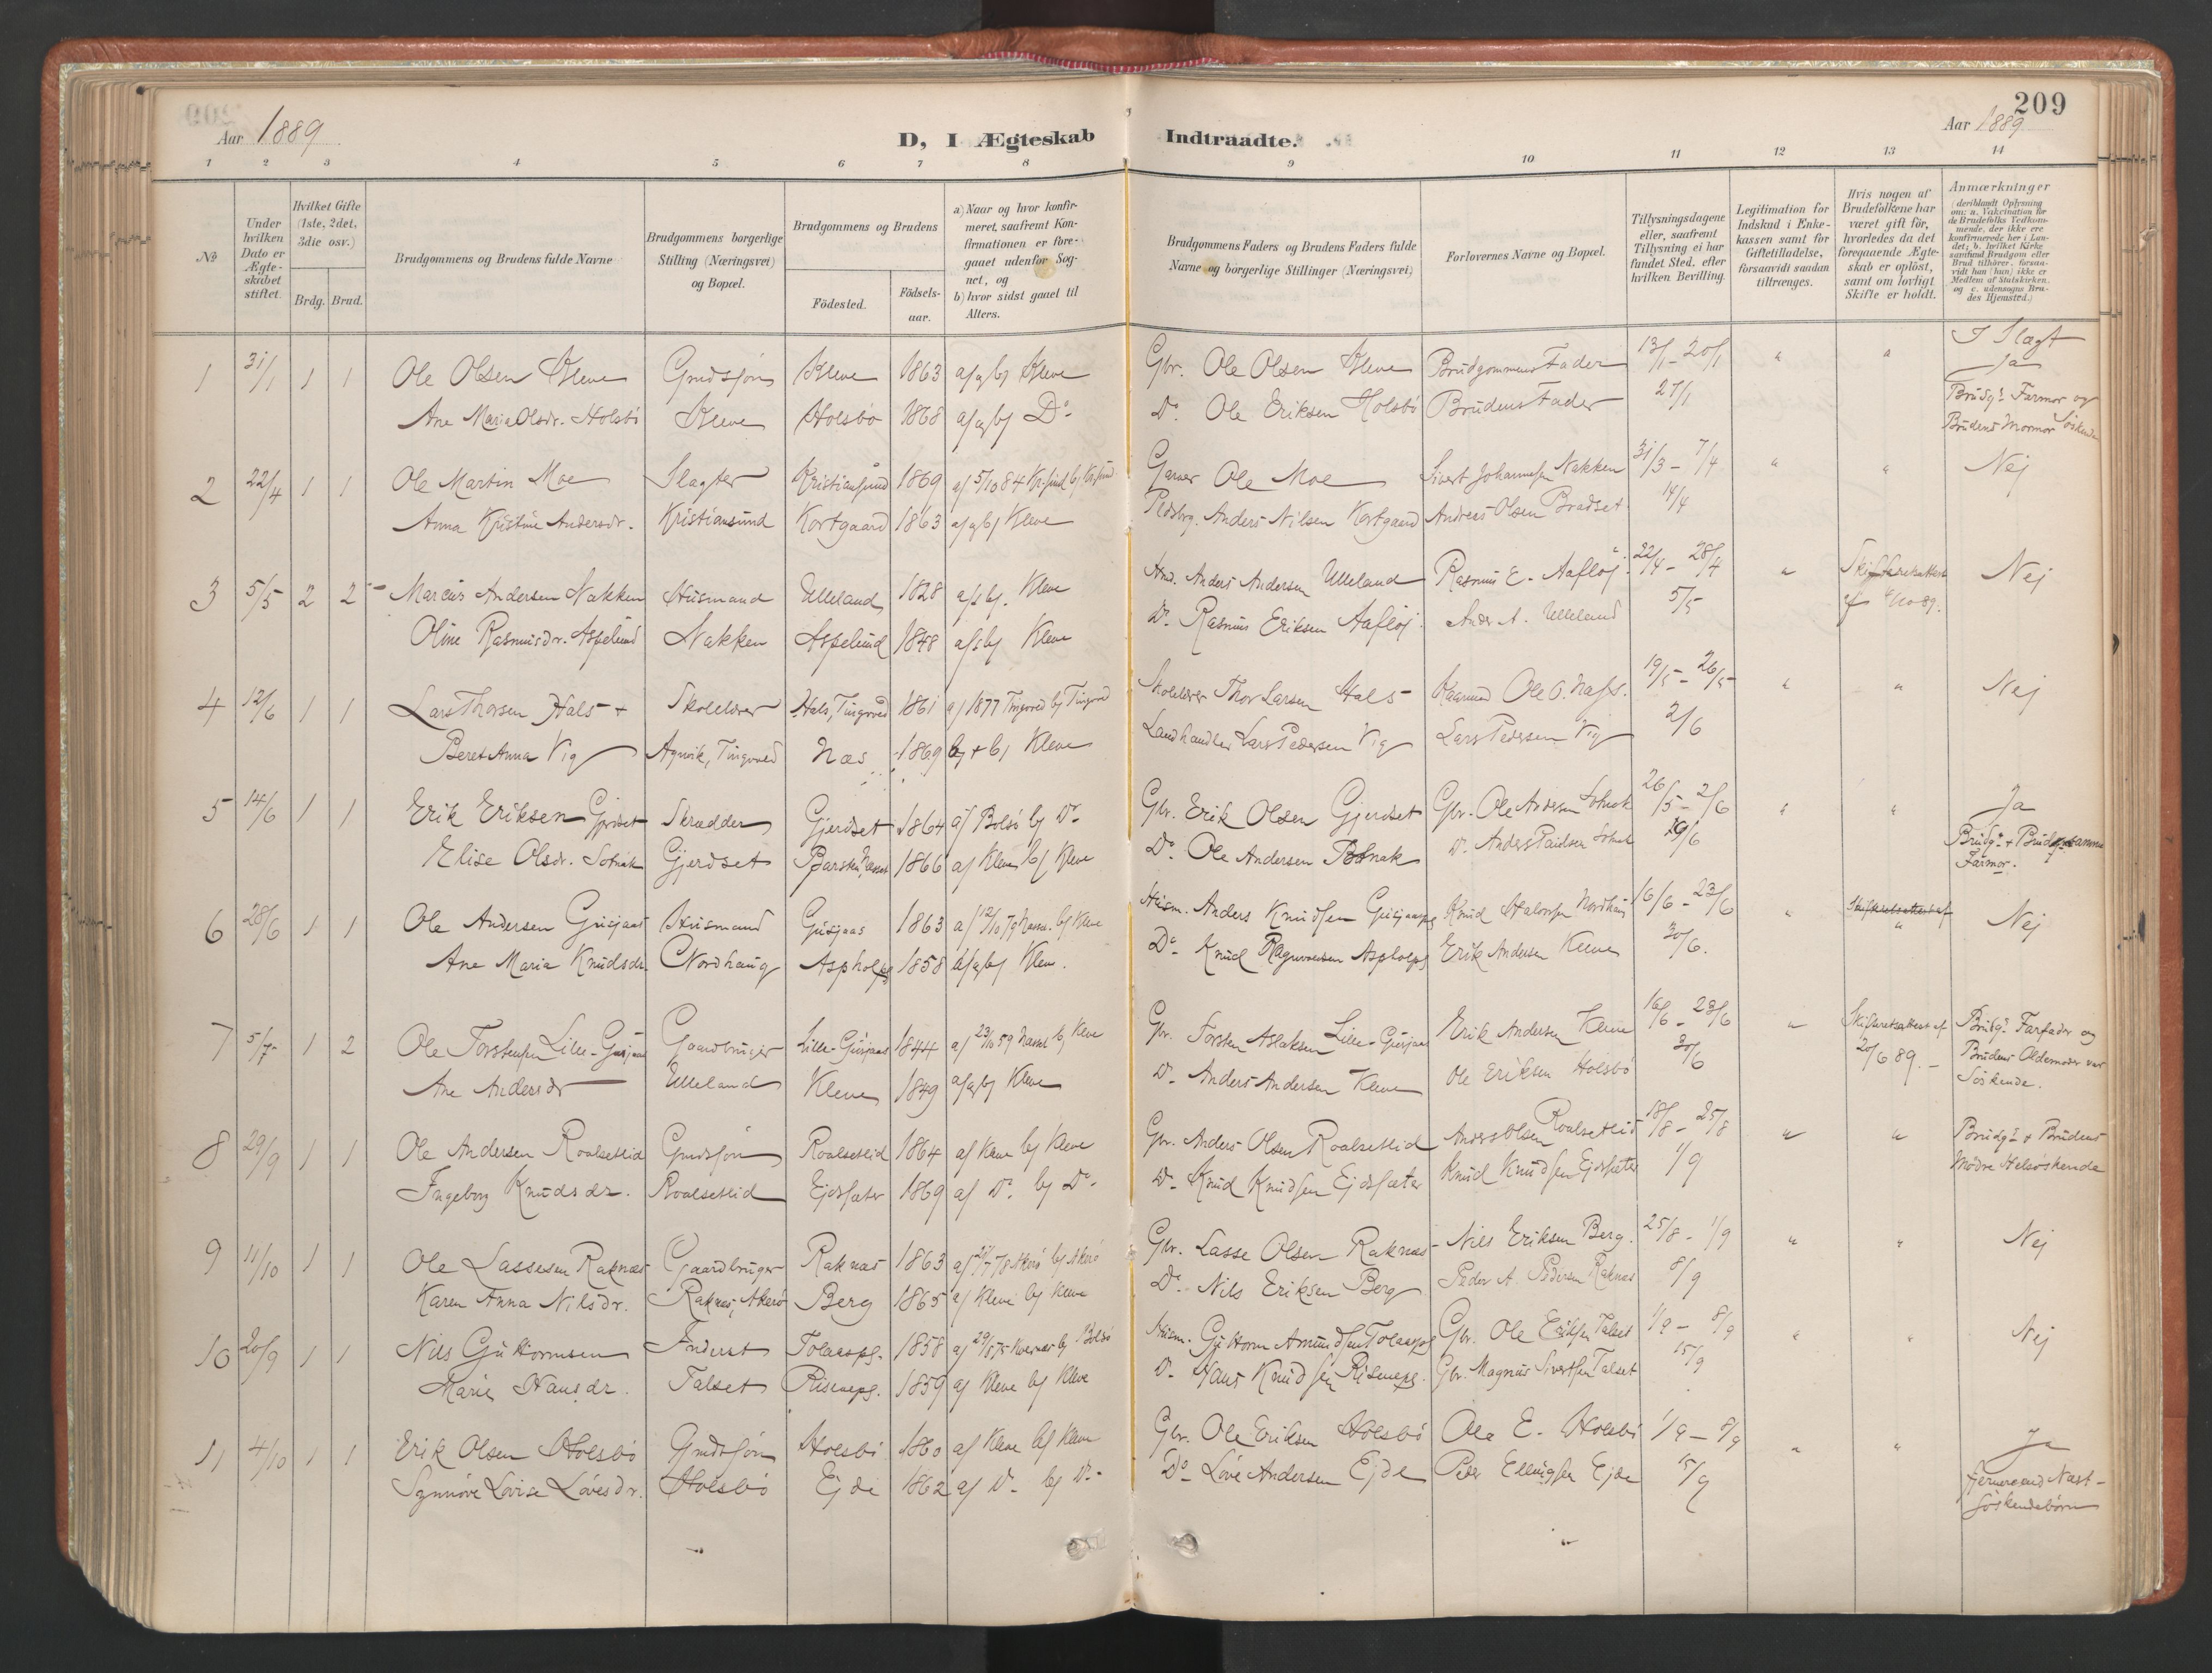 209
Aar 1889
D, I Ægteskab Indtraadte.
Aar 1889
1 2 3 4 5 6 7 8 9 10 11 12 13 14
№
Under hvilken Dato er Ægteskabet stiftet.
Hvilket Gifte (1ste, 2det, 3die osv.)
Brdg. Brud.
Brudgommens og Brudens fulde Navne
Brudgommens borgerlige Stilling (Næringsvei) og Bopæl.
Brudgommens og Brudens
Födested.
Födsels-aar.
a) Naar og hvor konfirmeret, saafremt Konfirmationen er foregaaet udenfor Sognet, og
b) hvor sidst gaaet til Alters.
Brudgommens Faders og Brudens Faders fulde Navne og borgerlige Stillinger (Næringsvei)
Forlovernes Navne og Bopæl.
Tillysningsdagene eller, saafremt Tillysning ei har fundet Sted, efter hvilken Bevilling.
Legitimation for Indskud i Enkekassen samt for Giftetilladelse, forsaavidt saadan tiltrænges.
Hvis nogen af Brudefolkene har været gift för, hvorledes da det foregaaende Ægteskab er oplöst, samt om lovligt Skifte er holdt.
Anmærkninger (deriblandt Oplysning om: a. Vakcination for de Brudefolks Vedkommende, der ikke ere konfirmerede her i Landet; b. hvilket Kirkesamfund Brudgom eller Brud tilhörer, forsaavidt han (hun) ikke er Medlem af Statskirken, og c. udensogns Brudes Hjemsted.)
1 31/1 1 1 Ole Olsen Kleve Grmdsjön Kleve 1863 af og bj Kleve Gbr. Ole Olsen Kleve Brudgommens Fader 13/1 - 20/1 " " I Slægt Ja
Ane Maria Olsdr. Holsbö Kleve Holsbö 1868 af og bj Do Do Ole Eriksen Holsbö Brudens Fader 27/1 Brudgs Farmor og Brudens Mormor Söskende
2 22/4 1 1 Ole Martin Moe Slagter Kristiansund 1869 af 5/10 84 Kr.sund bj Kr.sund Garver Ole Moe Sivert Johannesen Nakken 31/3 - 7/4 " " Nej
Anna Kristine Andersdr. Kristiansund Kortgaard 1863 af og bj Kleve Anders Nilsen Kortgaard Andreas Olsen Bradset 14/4
3 5/5 2 2 Marius Andersen Nakken Husmand Ulleland 1828 af bj. Kleve Hmd. Anders Andersen Ulleland Rasmus E. Aaflöj 22/4 - 28/4 " Nej
Oline Rasmusdr. Aspelund Nakken Aspelund 1848 af bj Kleve Do Rasmus Eriksen Aaflöj Anders A. Ulleland 5/5
4 12/6 1 1 Lars Thorsen Hals + Skolelærer Hals, Tingvold 1861 af 1877 Tingvold bj Tingvold Skolelærer Thor Larsen Hals Ole O. Næss. 19/5 - 26/5 " " Nej
Beret Anna Vig Agnvik, Tingvold Næs 1869 Kleve Landhandler Lars Pedersen Vig Lars Pedersen Vig 2/6
5 14/6 1 1 Erik Eriksen Gjerdset Skrædder Gjerdset 1864 af Bolsö bj Do Gbr. Erik Olsen Gjerdset Gbr. Ole Andersen Solnak 26/5 - 2/6 " " Ja
Elise Olsdr. Solnak Gjerdset 1866 af Kleve bj Kleve Do Ole Andersen Solnak 9/6 Brudg. + Brud samme Farmor.
6 28/6 1 1 Ole Andersen Gusjaas Husmand Gusjaas 1863 af 12/10 79 bj Kleve Husm. Anders Knudsen Gusjaaspl Knud Halvorsen Nordhaug 16/6 - 23/6 " " Nej
Ane Maria Knudsdr. Nordhaug 1858 af og bj Kleve. Do Knud Erik Andersen Kleve 30/6.
7 5/7 1 2 Ole Torstensen Lille-Gusjaas Gaardbruger Lille-Gusjaas 1844 af 23/10 59 bj Kleve Gbr. Torsten Aslaksen Lille-Gusjaas Erik Andersen Kleve 16/6 - 23/6 " Skifteretsattest af 20/6 89. Brudgs Farfader og
Ane Andersdr Ulleland Kleve 1849 af og bj Kleve Do Anders Andersen Kleve Ole Eriksen Holsbö 30/6 Brudens Oldemoder var Söskende.
8 29/9 1 1 Ole Andersen Roalsetlid Grmdsjön Roalsetlid 1864 af Kleve bj Kleve Gbr. Anders Olsen Roalsetlid Anders Olsen Roalsetlid 18/8 - 25/8 " " Brudgs + Brudens
Ingeborg Knudsdr. Roalsetlid Ejdsæter 1869 af Do bj Do Do Knud Knudsen Ejdsæter Knud Knudsen Ejdsæter 1/9 Mödre Helsöskende
9 11/10 1 1 Ole Lassesen Raknæs Gaardbruger Raknæs 1863 af 78 Akerö bj Akerö Gbr. Lasse Olsen Raknæs Nils Eriksen Berg. 25/8 - 1/9 " " Nej
Karen Anna Nilsdr. Raknæs, Akerö Berg 1865 af Kleve bj Kleve Do Nils Eriksen Berg Peder A. Pedersen Raknæs 8/9
10 20/9 1 1 Nils Guttormsen Inderst Tolaaspl. 1858 bj Bolsö Husm. Guttorm Amundsen Tolaaspl Gbr. Ole Eriksen Talset 1/9 - 8/9 " " Nej
Marie Hansdr. Talset Risanpl. 1859 af Kleve bj Kleve Do Hans Knudsen Gbr. Magnus Sivertsen Talset 15/9
11 4/10 1 1 Erik Olsen Holsbö Grmdsjön Holsbö 1860 af Kleve bj Kleve Gbr. Ole Eriksen Holsbö Ole E. Holsbö 1/9 - 8/9 " " Ja
Synnöve Lovise Lövesdr. Holsbö Ejde 1862 af Do bj Do Do Löve Andersen Ejde Peder Ellingsen Ejde 15/9 Fjernere end Næst-Söskendebörn